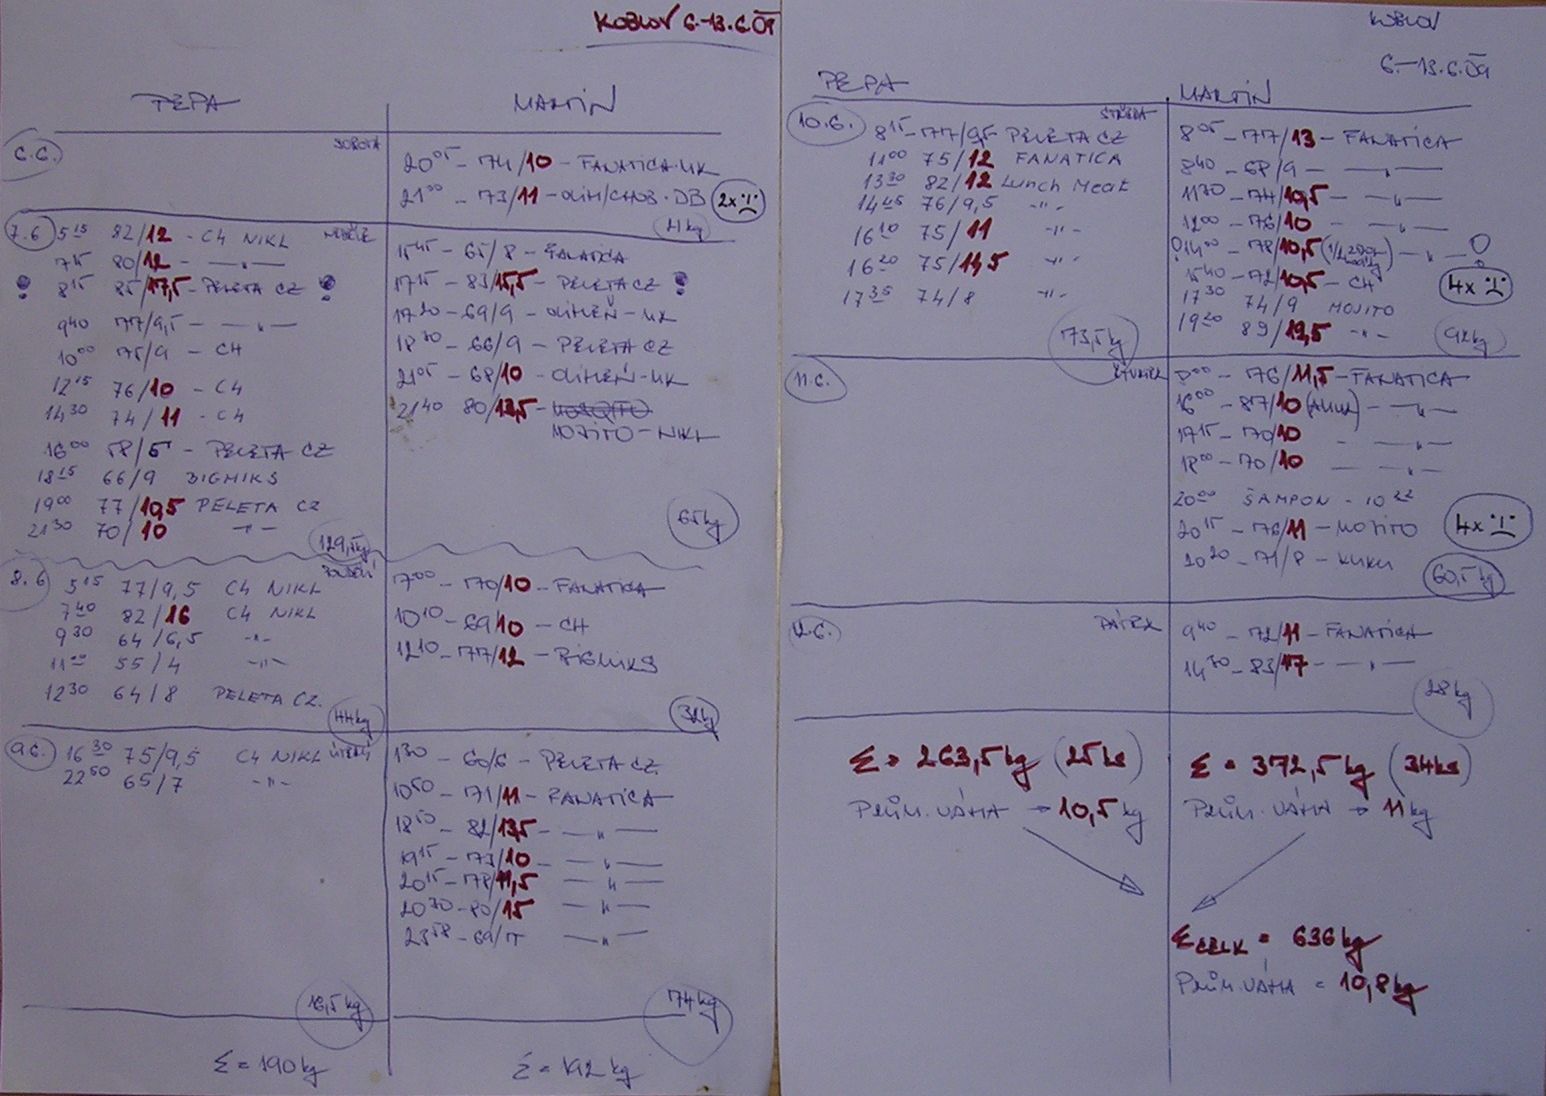 KOBLOV 6.-13.6.09
PEPA
MARTIN
6.6.
SOBOTA
20⁰⁵ - 74/10 - FANATICA-UK
21⁰⁰ - 73/11 - OLIH/CHOB-DB
2x
21kg
7.6
NEDĚLE
5¹⁵ 82/12 - C4 NIKL
7¹⁵ 80/12 - — " —
! 8¹⁵ 85/17,5 - PELETA CZ !
9⁴⁰ 77/9,5 - — " —
10⁰⁰ 75/9 - CH
12¹⁵ 76/10 - C4
14³⁰ 74/11 - C4
16⁰⁰ 58/5 - PELETA CZ
18¹⁵ 66/9 BIGMIKS
19⁰⁰ 77/10,5 PELETA CZ
21³⁰ 70/10 -"-
129,5kg
15⁴⁵ - 65/8 - FANATICA
17¹⁵ - 83/15,5 - PELETA CZ !
17²⁰ - 69/9 - OLIHEŇ - UK
18³⁰ - 66/9 - PELETA CZ
21⁰⁵ - 68/10 - OLIHEŇ - UK
21⁴⁰ 80/13,5 - MOJITO - NIKL
65kg
8.6
PONDĚLÍ
5¹⁵ 77/9,5 C4 NIKL
7⁴⁰ 82/16 C4 NIKL
9³⁰ 64/6,5 -"-
11⁰⁰ 55/4 -"-
12³⁰ 64/8 PELETA CZ.
44kg
7⁰⁰ - 70/10 - FANATICA
10¹⁰ - 69/10 - CH
12¹⁰ - 77/12 - BIGMIKS
32kg
9.6.
ÚTERÝ
16³⁰ 75/9,5 C4 NIKL
22⁵⁰ 65/7 -"-
16,5kg
1³⁰ - 60/6 - PELETA CZ
10⁵⁰ - 71/11 - FANATICA
18⁵⁰ - 82/13,5 - — " —
19¹⁵ - 73/10 - — " —
20¹⁵ - 78/11,5 — " —
20³⁰ - 80/15 — " —
23⁵⁸ - 69/7 — " —
74kg
Σ = 190kg
Σ = 192kg
KOBLOV
6.-13.6.09
PEPA
MARTIN
10.6.
STŘEDA
8¹⁵ - 77/9,5 - PELETA CZ
11⁰⁰ 75/12 FANATICA
13³⁰ 82/12 Lunch Meat
14⁴⁵ 76/9,5 -"-
16¹⁰ 75/11 -"-
16²⁰ 75/11,5 -"-
17³⁵ 74/8 -"-
73,5kg
8⁰⁵ - 77/13 - FANATICA
8⁴⁰ - 68/9 - — " —
11³⁰ - 74/10,5 - — " —
12⁰⁰ - 76/10 - — " —
! 14⁰⁰ - 78/10,5 — " — !
15⁴⁰ - 72/10,5 - CH
17³⁰ 74/9 MOJITO
19²⁰ 89/19,5 -"-
4x
92kg
11.6.
ČTVRTEK
8⁰⁰ - 76/11,5 - FANATICA
16⁰⁰ - 87/10 (AMUR) - — " —
17¹⁵ - 70/10 — " —
18⁰⁰ - 70/10 — " —
20⁰⁰ ŠAMPON - 10²²
20¹⁵ - 76/11 - MOJITO
20²⁰ - 71/8 - KUKU
4x
60,5kg
12.6.
PÁTEK
9⁴⁰ - 72/11 - FANATICA
14³⁰ - 83/17 - — " —
28kg
Σ = 263,5kg (25ks)
PRŮM. VÁHA → 10,5kg
Σ = 372,5kg (34ks)
PRŮM. VÁHA → 11kg
Σ CELK = 636kg
PRŮM. VÁHA = 10,8kg